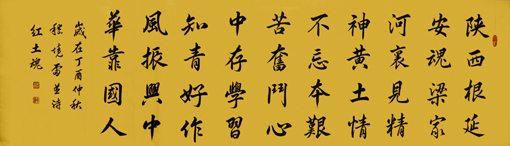 陕西根延
安魂梁家
河裏見精
神黄土情
不忘本艱
苦奮鬥心
中存學習
知青好作
風振興中
華靠國人
歲在丁酉仲秋
紅土魂